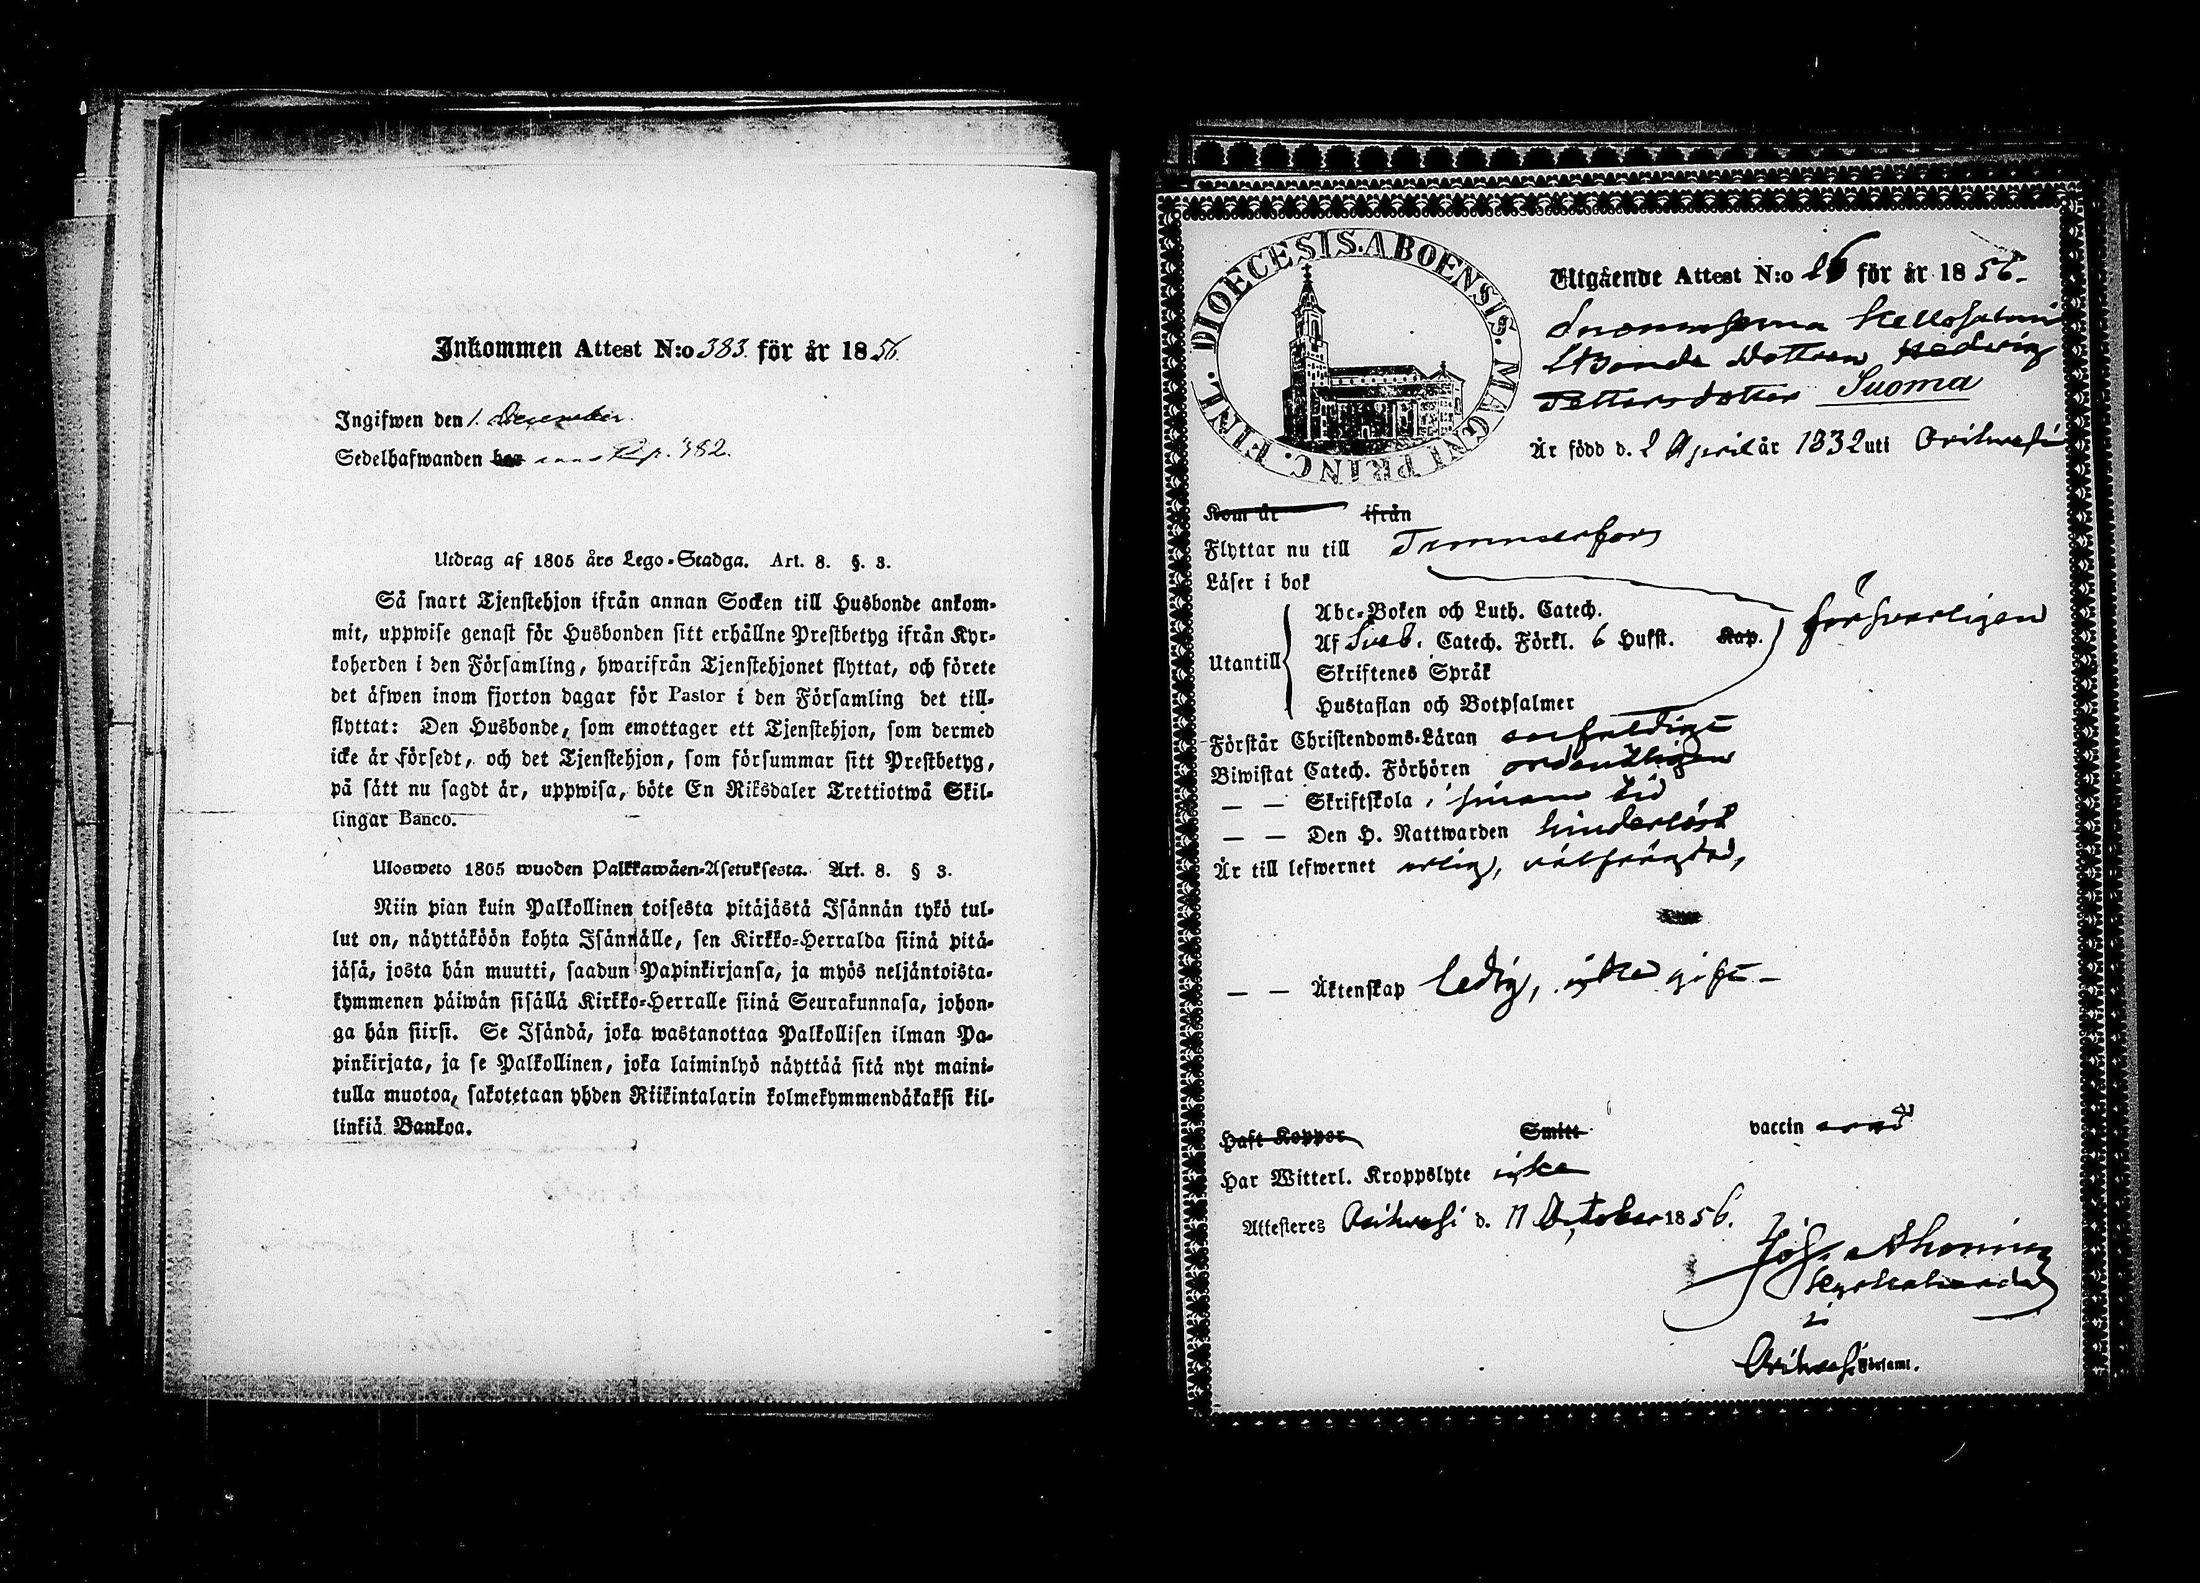 Inkommen Attest N:o 383. för år 1856.
Ingifwen den 1. December.
Sedelhafwanden har p. 782.
Utdrag af 1805 års Lego-Stadga. Art. 8. §. 3.
Så snart Tjenstehjon ifrån annan Socken till Husbonde ankom-
mit, uppwise genast för Husbonden sitt erhållne Prestbetyg ifrån Kyr-
koherden i den Församling, hwarifrån Tjenstehjonet flyttat, och förete
det äfwen inom fjorton dagar för Pastor i den Församling det till-
flyttat: Den Husbonde, som emottager ett Tjenstehjon, som dermed
icke är försedt, och det Tjenstehjon, som försummar sitt Prestbetyg,
på sätt nu sagdt är, uppwisa, böte En Riksdaler Trettiotwå Skil-
lingar Banco.
Ulosweto 1805 wuoden Palkkawäen-Asetuksesta. Art. 8. § 3.
Niin pian kuin Palkollinen toisesta pitäjästä Isännän tykö tul-
lut on, näyttäköön kohta Isännälle, sen Kirkko-Herralda siinä pitä-
jäsä, josta hän muutti, saadun Papinkirjansa, ja myös neljäntoista-
kymmenen päiwän sisällä Kirkko-Herralle siinä Seurakunnasa, johon-
ga hän siirsi. Se Isändä, joka wastanottaa Palkollisen ilman Pa-
pinkirjata, ja se Palkollinen, joka laiminlyö näyttää sitä nyt maini-
tulla muotoa, sakotetaan yhden Riikintalarin kolmekymmendäkaksi kil-
linkiä Bankoa.
DIOECESIS. ABOENSIS. MAGNI PRINC. FINL.
Utgående Attest N:o 26 för år 1856.
Bonde Dottren Hedvig
Pettersdotter Suoma
Är född d. 2 April år 1832 uti Orihvesi
Kom år ifrån
Flyttar nu till Tammerfors
Läser i bok
Abc-Boken och Luth. Catech.
Af Sveb. Catech. Förkl. 6 Hufst. Kap. försvarligen
Utantill
Skriftenes Språk
Hustaflan och Botpsalmer
Förstår Christendoms-Läran enfaldigt
Biwistat Catech. Förhören ordentligen
— — Skriftskola i sinom tid
— — Den H. Nattwarden hinderlöst
Är till lefwernet ärlig, välfrägdad,
— — Äktenskap ledig, icke gift -
Haft Koppor Smitt vaccin
Har Witterl. Kroppslyte icke
Attesteres Orihvesi d. 11 October 1856.
Joh. Ahoning
Kyrkoherde
i
Orihvesi Församl.